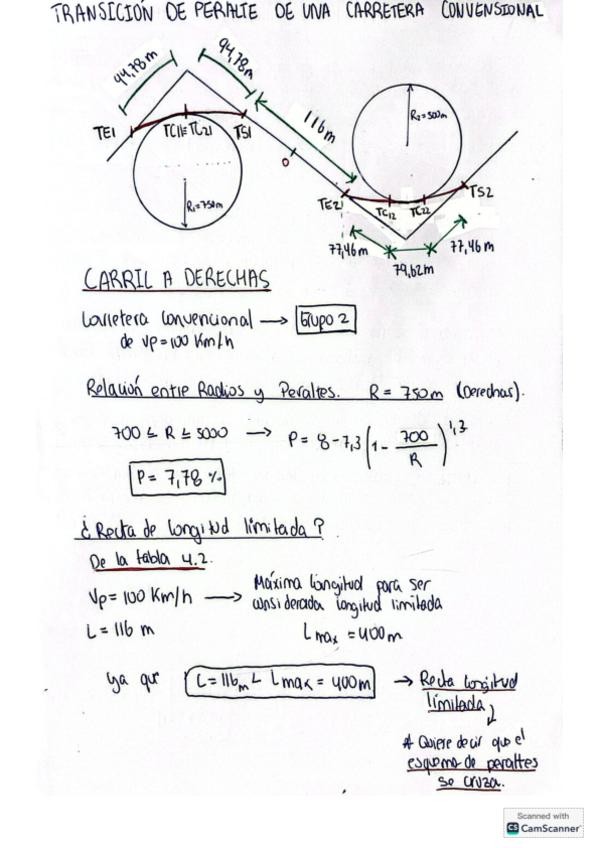 TRANSICIÓN DE PERALTE DE UNA CARRETERA CONVENSIONAL
94,78m
94,78m
116m
R2=500m
TE1
TC11=TC21
TS1
O
R1=750m
TE2
TC12
TC22
TS2
77,46m
77,46m
79,62m
CARRIL A DERECHAS
Carretera Convencional → Grupo 2
de Vp=100 Km/h
Relación entre Radios y Peraltes. R = 750m (Derechas).
700 ≤ R ≤ 5000 → P = 8-7,3(1-700/R)^1,3
P= 7,78 %
¿Recta de longitud limitada?
De la tabla 4.2.
Vp=100 Km/h → Máxima longitud para ser
considerada longitud limitada
L= 116 m
Lmax =400m
Ya que L=116m < Lmax = 400m → Recta longitud
limitada
* Quiere decir que el
esquema de peraltes
se cruza.
Scanned with
CS CamScanner